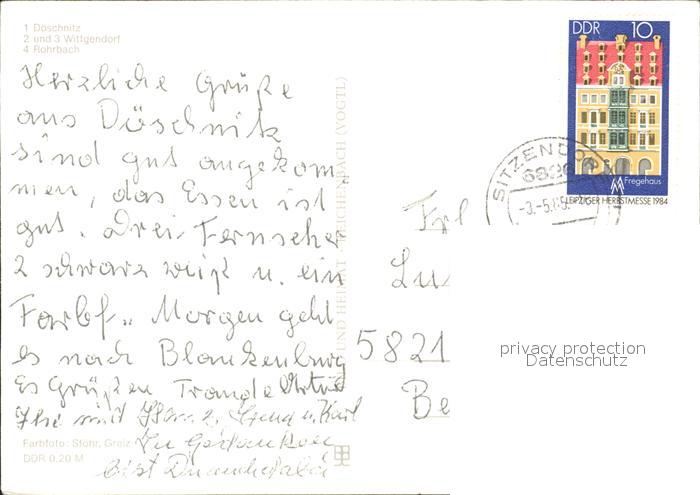 1 Döschnitz
2 und 3 Wittgendorf
4 Rohrbach
Herzliche Grüße
aus Döschnitz
sind gut angekom
men, das Essen ist
gut. Drei Fernseher
2 schwarz weiß u. ein
Farbf. Morgen geht
es nach Blankenburg
Es Grüßen
In Gedanken
bist Du auch dabei
Farbfoto: Stöhr, Greiz
DDR 0,20 M
UND HEIMAT REICHENBACH (VOGTL)
DDR 10
Fregehaus
LEIPZIGER HERBSTMESSE 1984
SITZENDORF
Frl
5821
Be
privacy protection
Datenschutz